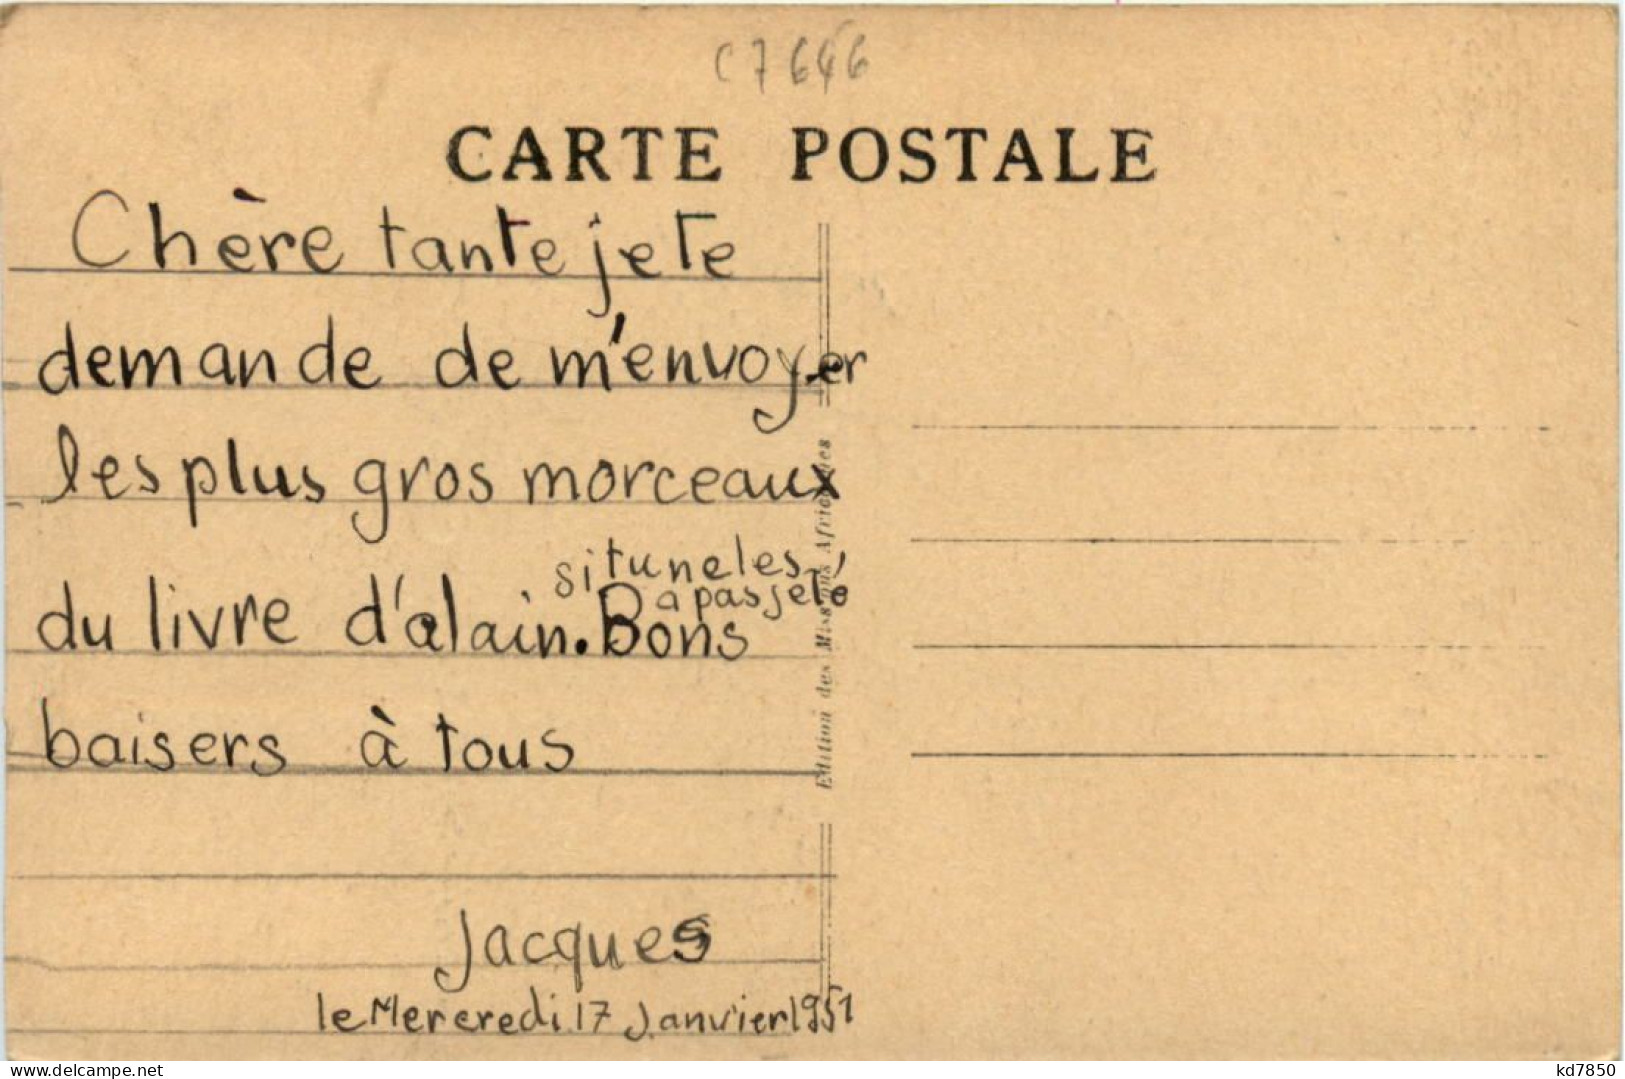 C7646
CARTE POSTALE
Chère tante je te
demande de m'envoyer
les plus gros morceaux
si tu ne les
a pas jeté
du livre d'alain. Bons
baisers à tous
Jacques
le Mercredi 17 Janvier 1951
Edition des Missions Africaines
www.delcampe.net
kd7850